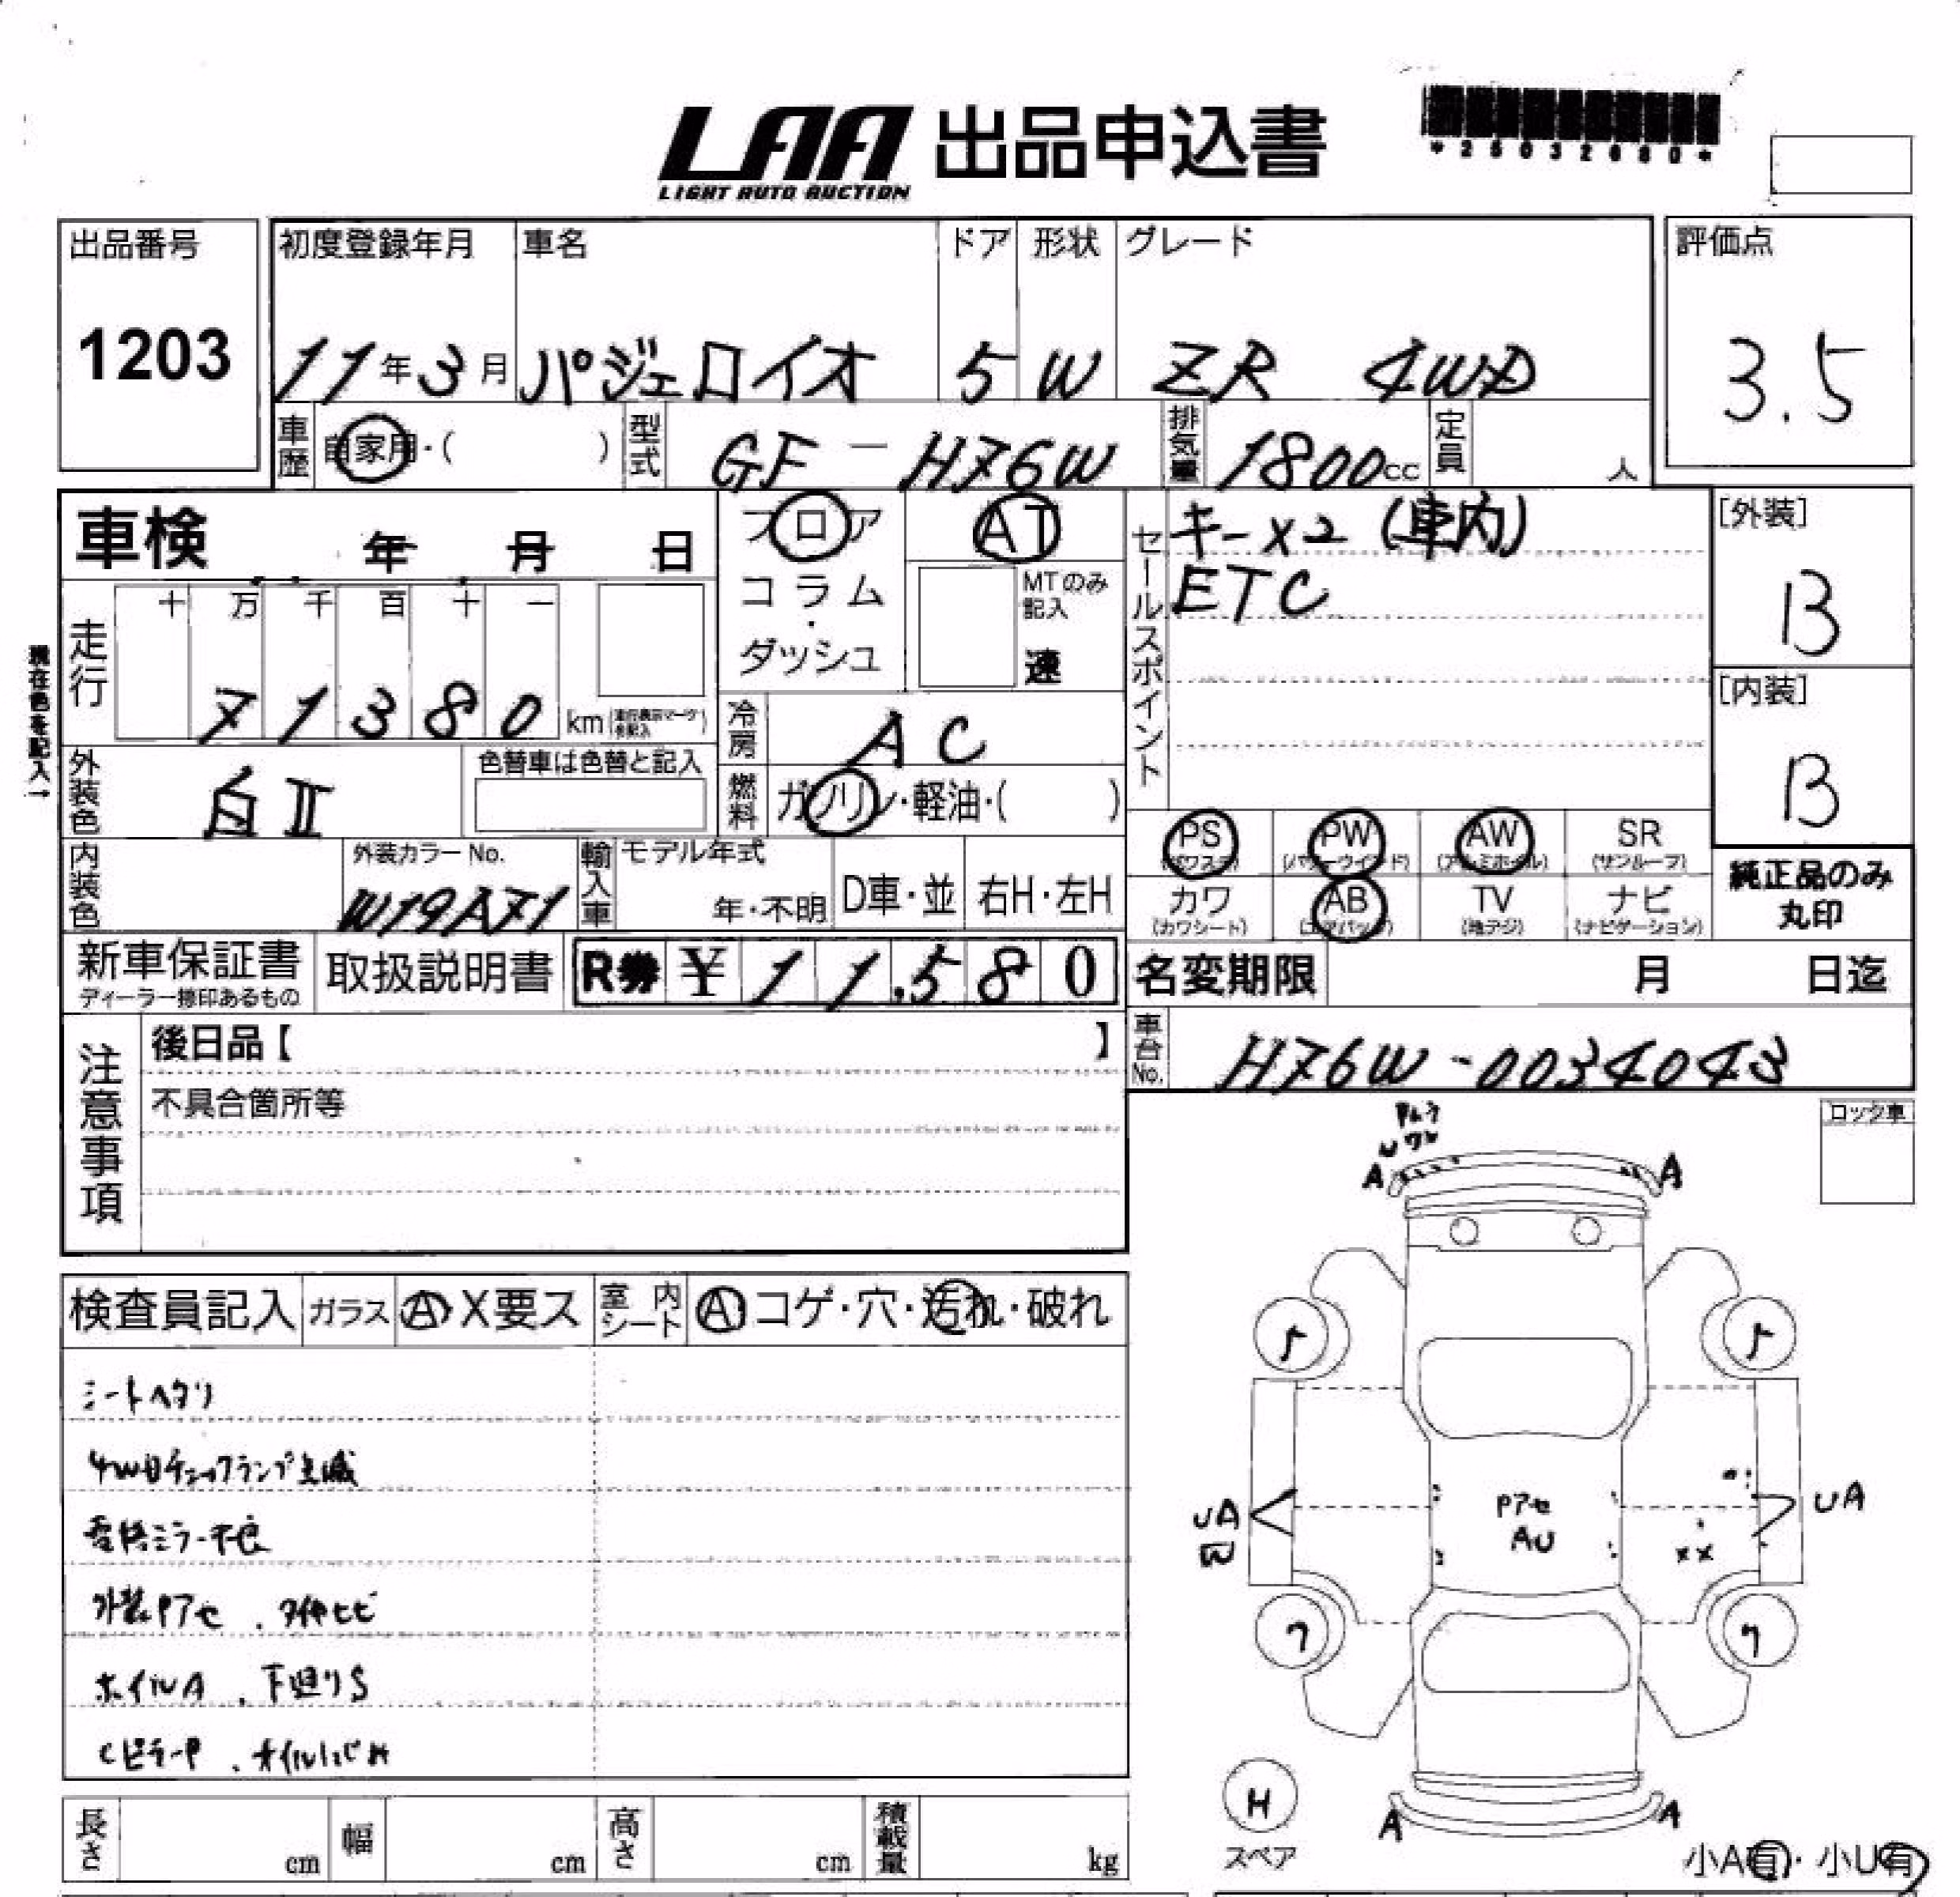 LAA 出品申込書
LIGHT AUTO AUCTION
*25032680*
出品番号 初度登録年月 車名 ドア 形状 グレード 評価点
1203 11年3月 パジェロイオ 5 W ZR 4WD 3.5
車歴 自家用・( ) 型式 GF-H76W 排気量 1800cc 定員 人
車検 年 月 日 フロア AT キーX2(車内) [外装]
コラム・ダッシュ MTのみ記入 速 セールスポイント ETC B
走行 十 万 千 百 十 一
71380 km
現在色を記入→
[内装]
B
冷房 AC
外装色 白II 色替車は色替と記入 燃料 ガソリン・軽油・( )
PS (パワステ) PW (パワーウインド) AW (アルミホイル) SR (サンルーフ)
内装色 外装カラーNo. W19A71 輸入車 モデル年式 年・不明 D車・並 右H・左H
カワ (カワシート) AB (エアバッグ) TV (地デジ) ナビ (ナビゲーション)
純正品のみ
丸印
新車保証書 ディーラー捺印あるもの 取扱説明書 R券 ¥11,580 名変期限 月 日迄
注意事項 後日品【 】 車台No. H76W-0034043
不具合箇所等
ロック車
A A
検査員記入 ガラス A・X要ス 室内シート A・コゲ・穴・汚れ・破れ
シートヘタリ
4WDチェックランプ点滅
電格ミラー不良
外装Pアセ
ホイルA、下廻りS
CピラーP
UA Pアセ UA
AU
XX
H
スペア
A A
長さ cm 幅 cm 高さ cm 積載量 kg
小A有・小U有